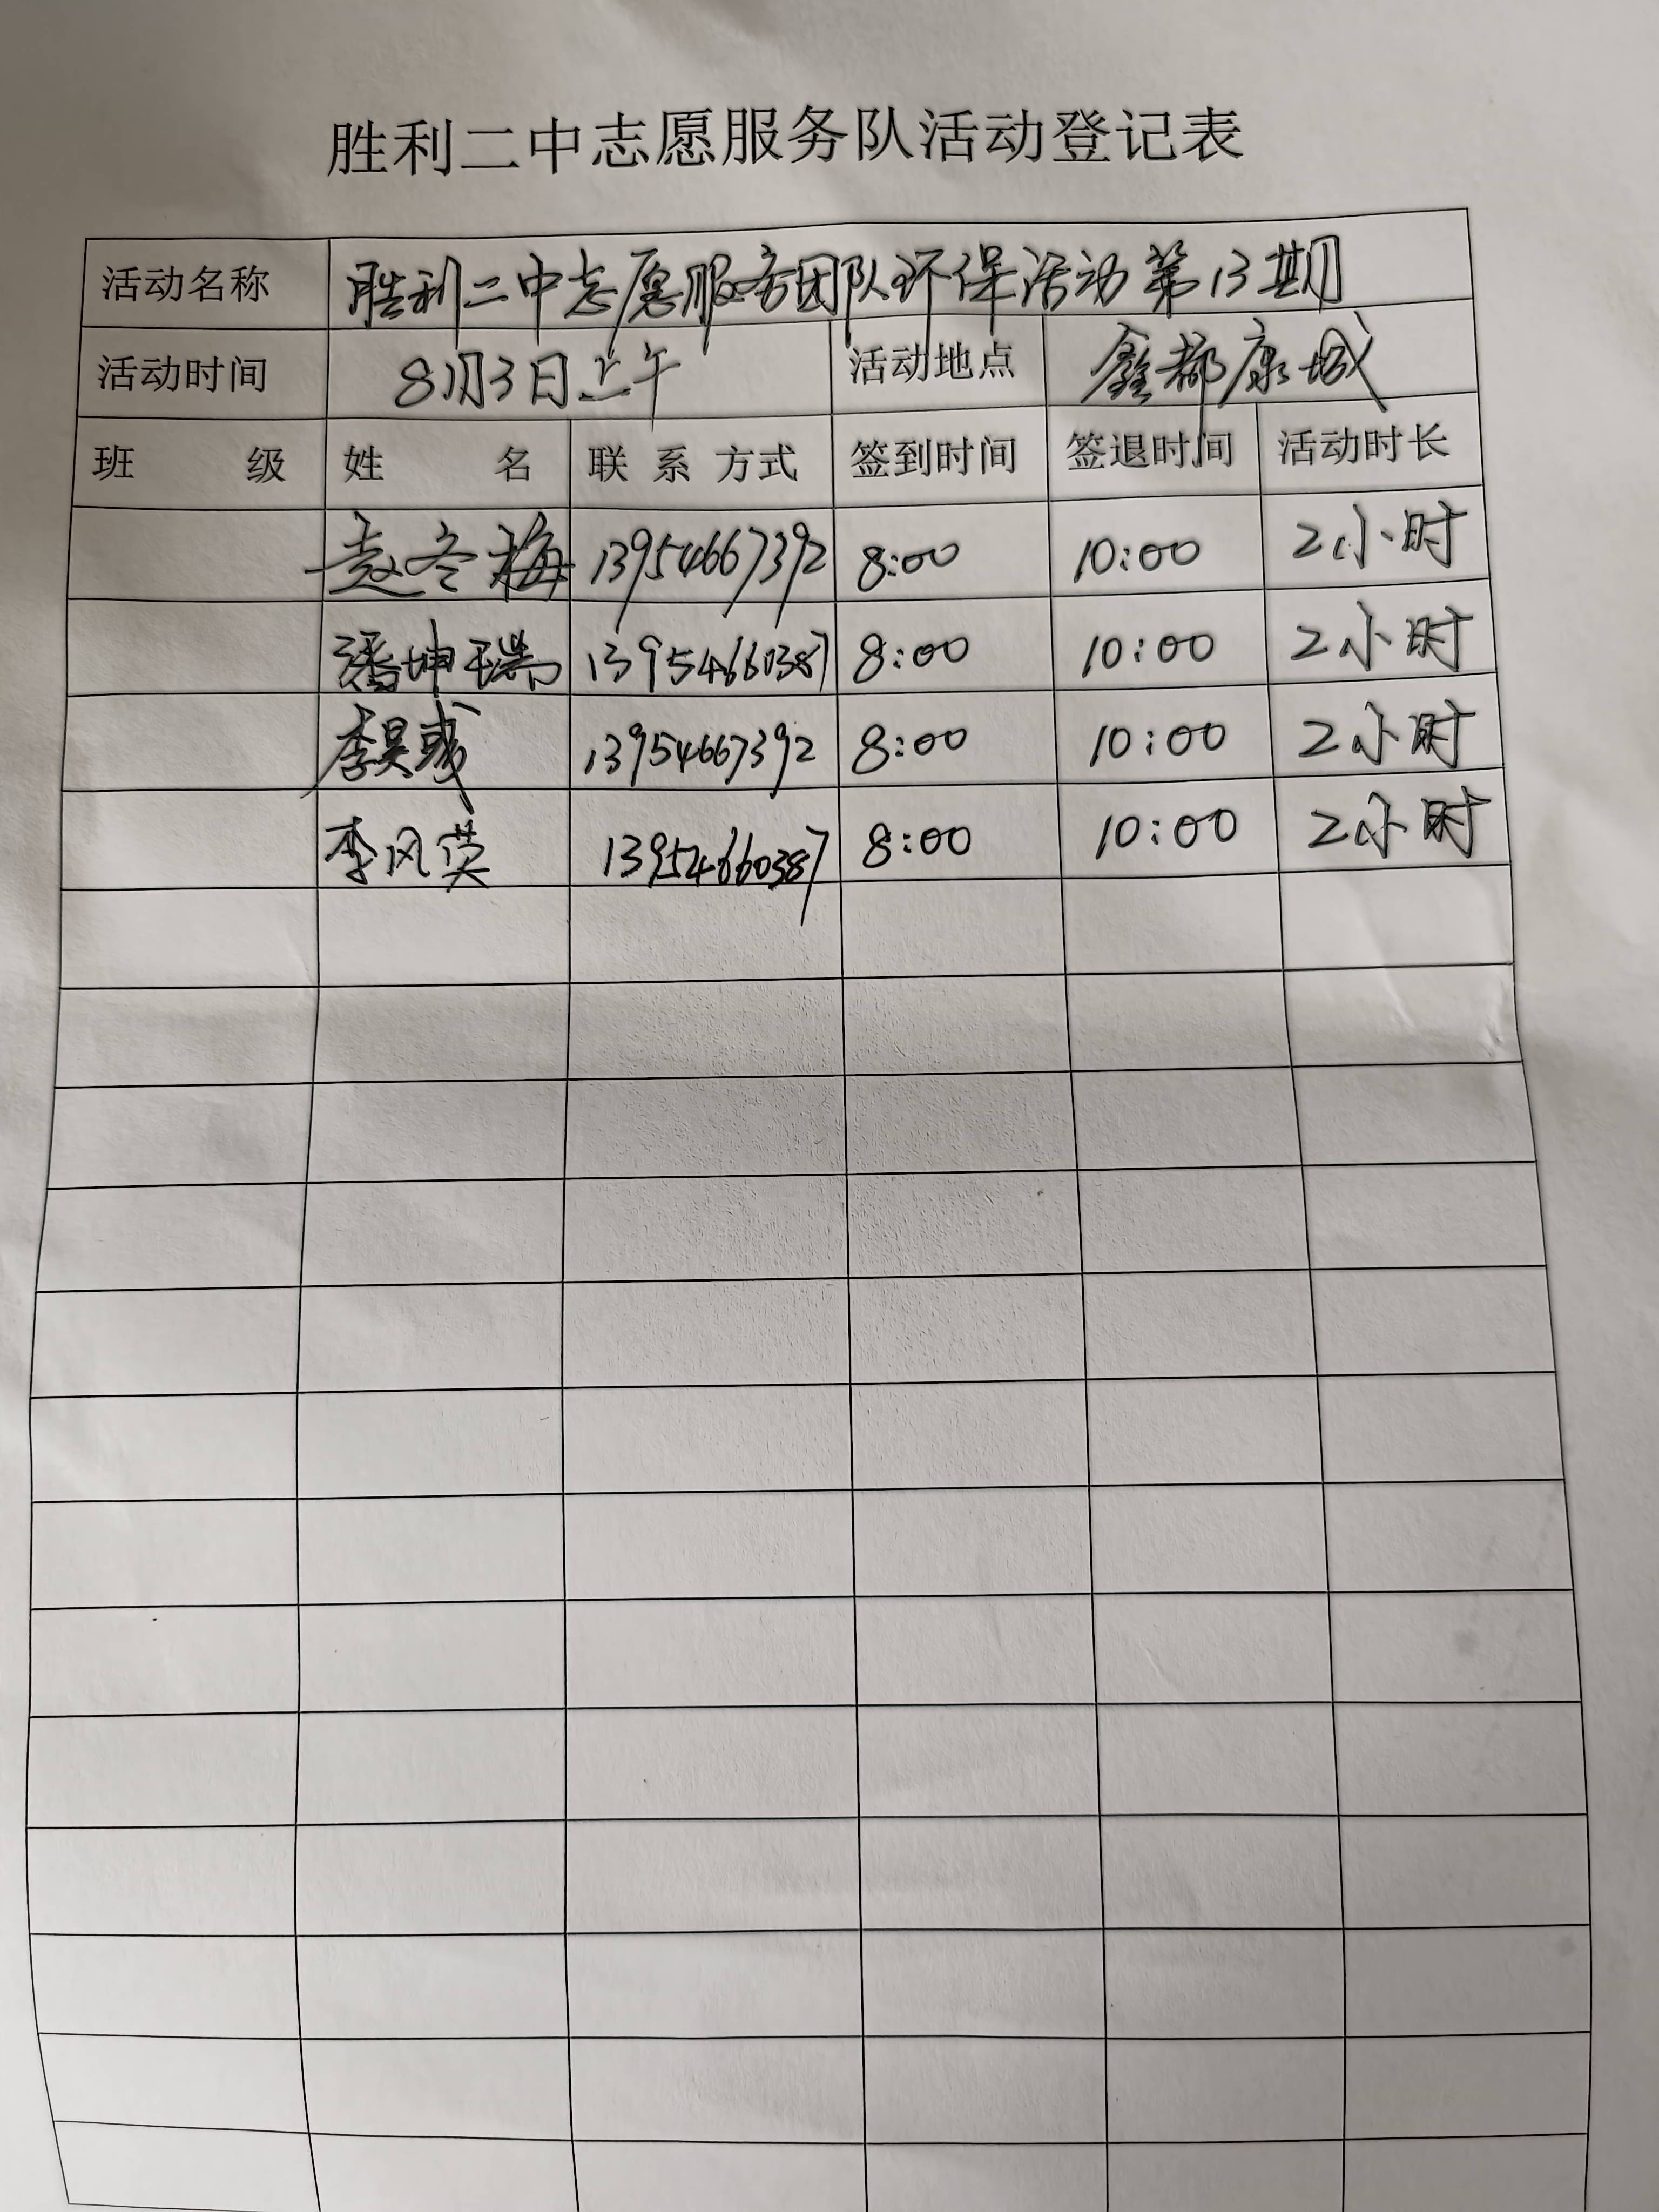 胜利二中志愿服务队活动登记表
活动名称 胜利二中志愿服务团队环保活动第13期
活动时间 8月3日上午 活动地点 鑫都康城
班 级 姓 名 联 系 方式 签到时间 签退时间 活动时长
赵冬梅 13954667392 8:00 10:00 2小时
潘坤瑞 13954660387 8:00 10:00 2小时
李昊彧 13954667392 8:00 10:00 2小时
李风英 13954660387 8:00 10:00 2小时